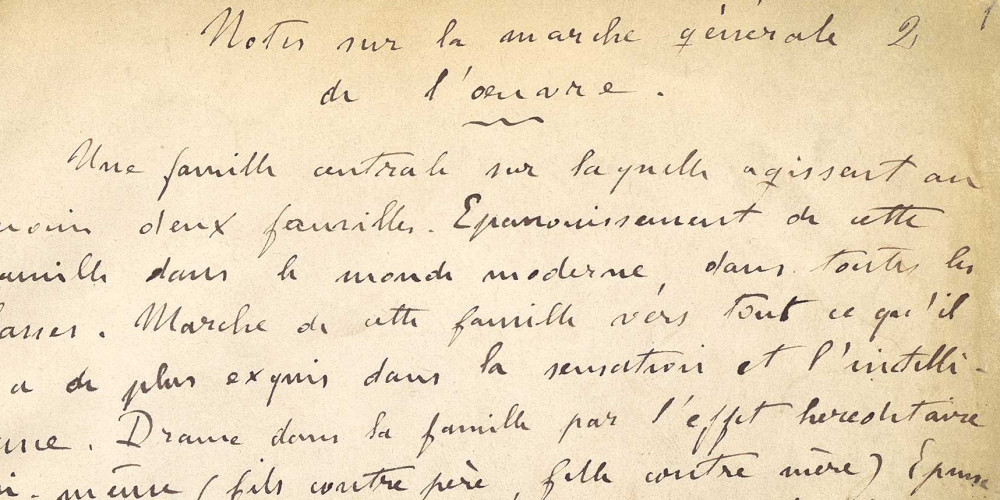 Notes sur la marche générale 2
de l'œuvre.
Une famille centrale sur laquelle agissent au
moins deux familles. Epanouissement de cette
amille dans le monde moderne, dans toutes les
lasses. Marche de cette famille vers tout ce qu'il
a de plus exquis dans la sensation et l'intelli-
ence. Drame dans la famille par l'effet hereditaire
i-même (fils contre père, fille contre mère) Epuise